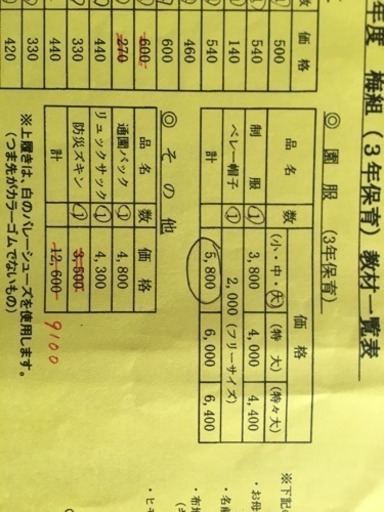 年度 梅組 (3年保育) 教材一覧表
数 価格
500
① 540
① 140
540
460
600
600
270
440
330
440
330
420
◎ 園 服 (3年保育)
品 名 数 価 格
(小・中・大) (特 大) (特々大)
制 服 ① 3,800 4,000 4,400
ベレー帽子 ① 2,000 (フリーサイズ)
計 5,800 6,000 6,400
◎ その他
品 名 数 価 格
通園バック ① 4,800
リュックサック ① 4,300
防災ズキン ① 3,500
計 12,600 9100
※上履きは、白のバレーシューズを使用します。
(つま先がカラーゴムでないもの)
※下記
・お母
・名前
・布地
・ヒモ